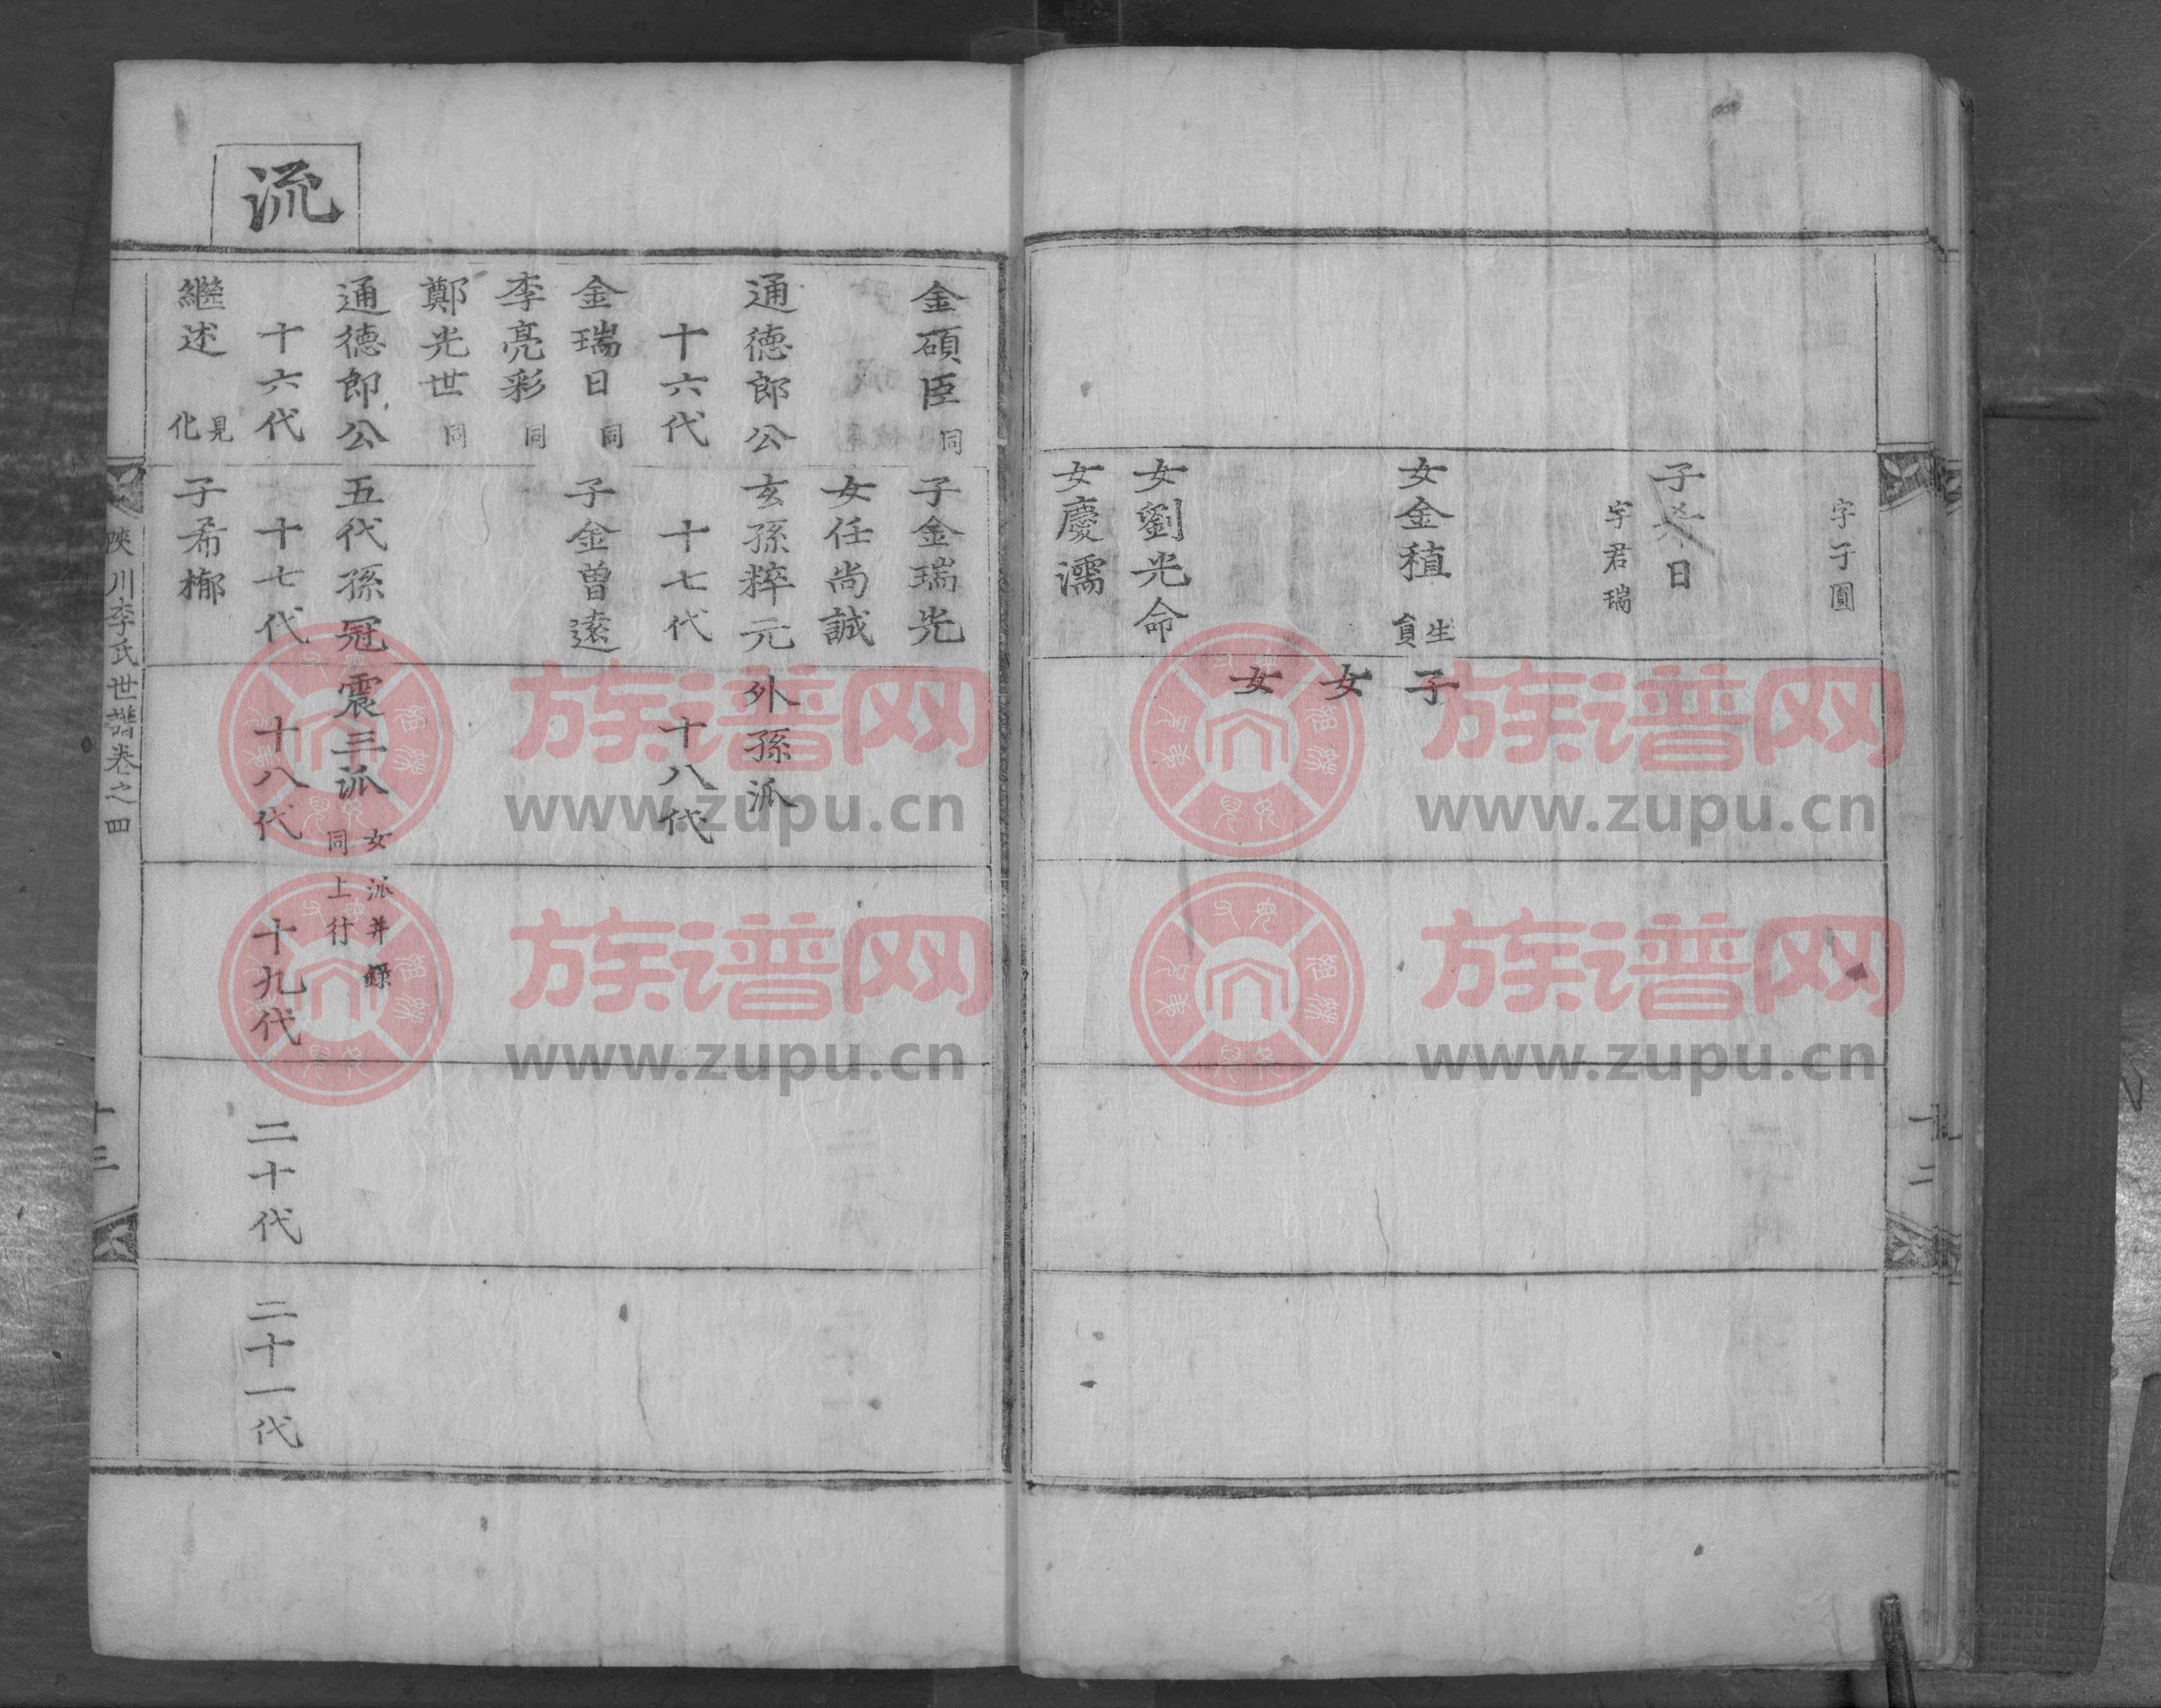 字子圓
子
日
字君瑞
女金稙 生員
子
女
女
女劉光命
女慶濡
十二
金碩臣 同
子金瑞光
女任尚誠
通德郎公
玄孫粹元
外孫派
十六代
十七代
十八代
金瑞日 同
子金曾遠
李亮彩 同
鄭光世 同
通德郎公
五代孫冠
震三派 女派并錄同上行
十六代
十七代
十八代
十九代
二十代
二十一代
繼述 見化
子希郁
流
陜川李氏世譜卷之四
十三
族谱网
www.zupu.cn
族谱网
www.zupu.cn
族谱网
www.zupu.cn
族谱网
www.zupu.cn